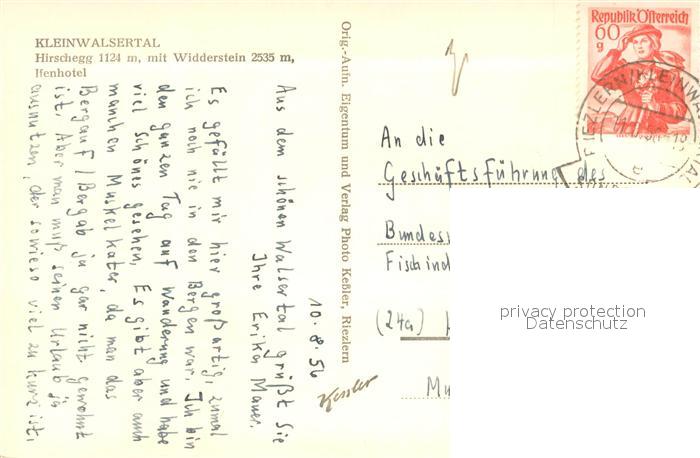 KLEINWALSERTAL
Hirschegg 1124 m, mit Widderstein 2535 m,
Ifenhotel
10.8.56
Aus dem schönen Walsertal grüßt Sie
Ihre Erika Mauer.
Es gefällt mir hier großartig, zumal
ich noch nie in den Bergen war. Ich bin
den ganzen Tag auf Wanderung und habe
viel schönes gesehen. Es gibt aber auch
manchen Muskelkater, da man das
Bergauf / Bergab ja gar nicht gewohnt
ist. Aber man muß seinen Urlaub ja
ausnutzen, der sowieso viel zu kurz ist.
Kessler
Orig.-Aufn. Eigentum und Verlag Photo Keßler, Riezlern
Republik Österreich
60
g
RIEZLERN (KLEINWALSERTAL
An die
Geschäftsführung des
Bundes
Fischind
(24a)
Mu
privacy protection
Datenschutz